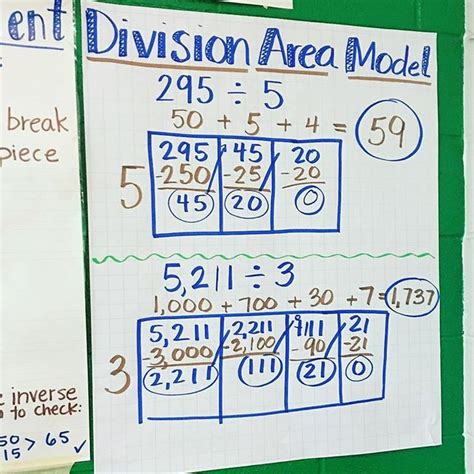 ent
break
piece
e inverse
n to check:
50 > 65 ✓
15
Division Area Model
295 ÷ 5
50 + 5 + 4 = 59
5
295 45 20
-250 -25 -20
45 20 0
5,211 ÷ 3
1,000 + 700 + 30 + 7 = 1,737
3
5,211 2,211 111 21
-3,000 -2,100 -90 -21
2,211 111 21 0